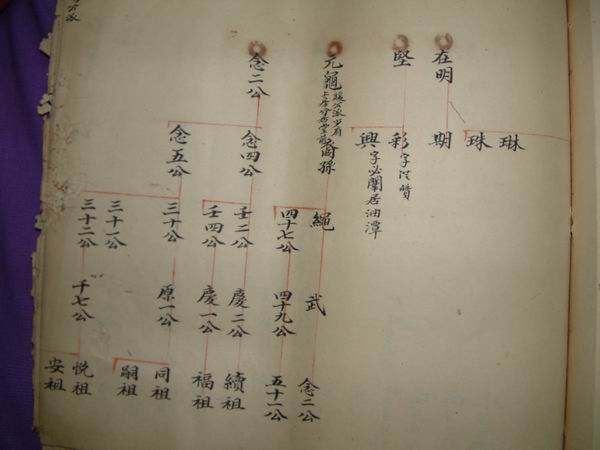 琳
珠
在明
期
堅
彩
字從賢
興
字必闡居油潭
元龜
繩
武
念二公
四十七公
四十九公
五十一公
念二公
念四公
壬二公
慶二公
續祖
壬四公
慶一公
福祖
念五公
三十公
原一公
同祖
嗣祖
三十一公
三十二公
千七公
悅祖
安祖